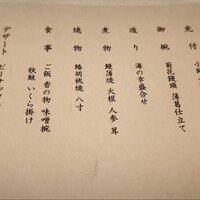 先付
御椀
菊花饅頭 薄葛仕立て
造り
海の幸盛合せ
煮物
鰻蒲焼 大根 人参 茸
焼物
鰆胡桃焼 八寸
食事
ご飯 香の物 味噌椀
秋鮭 いくら掛け
デザート